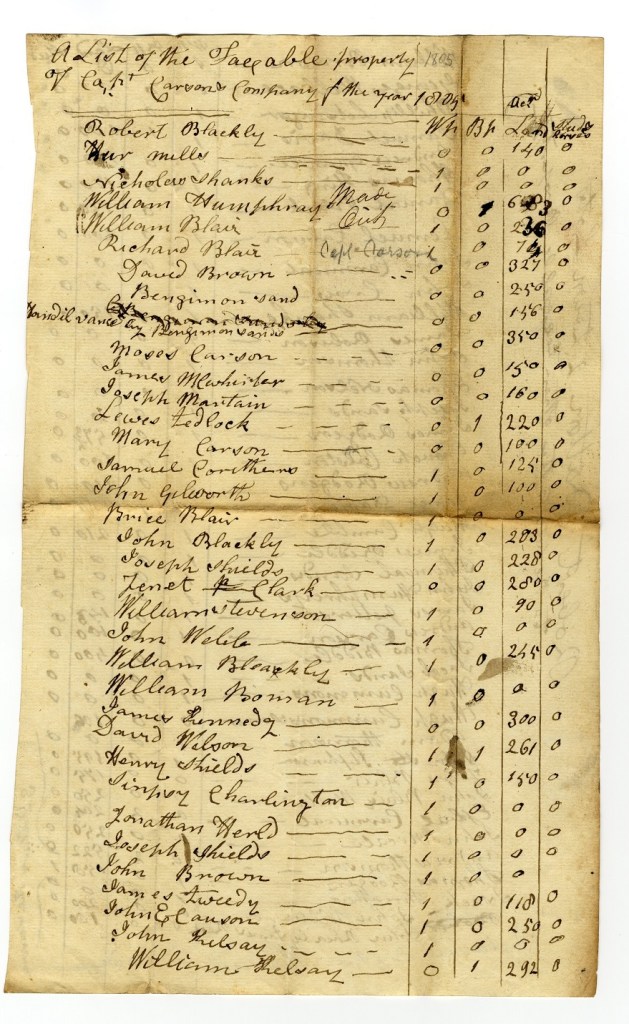 A List of the Taxable property 1805
of Capt Carsons Company f the year 1805
Wp Bp Acrd Land Studs horses
Robert Blackly 0 0 140 0
Hur mills 1 0 0 0
Nicholew Shanks 1 0 0 0
William Humphray Made 0 1 0
William Blair Out 1 0 0
Richard Blair Capt Carson 1 0 74 0
David Brown 0 0 327 0
Bengimon sand 0 0 250 0
by Bengimon sands 0 0 156 0
Moses Carson 0 0 350 0
James McWhirter 0 0 150 0
Joseph Mantain 0 0 160 0
Lewes Tedlock 0 1 220 0
Mary Carson 0 0 100 0
Samuel Corithers 1 0 125 0
John Gilworth 1 0 100 0
Brice Blair 1 0 0 0
John Blackly 1 0 283 0
Joseph Shields 1 0 228 0
Jenet Clark 0 0 280 0
William Stevenson 1 0 90 0
John Webb 1 0 0 0
William Bleackly 1 0 245 0
William Boman 1 0 0 0
James Kennedy 0 0 300 0
David Wilson 1 1 261 0
Henry Shields 1 0 150 0
Sinpsy Charlington 1 0 0 0
Jonathan Herld 1 0 0 0
Joseph Shields 1 0 0 0
John Brown 1 0 0
James Tweedy 1 0 118 0
John Clauson 1 0 250 0
John Kelsay 1 0 0 0
William Kelsay 0 1 292 0